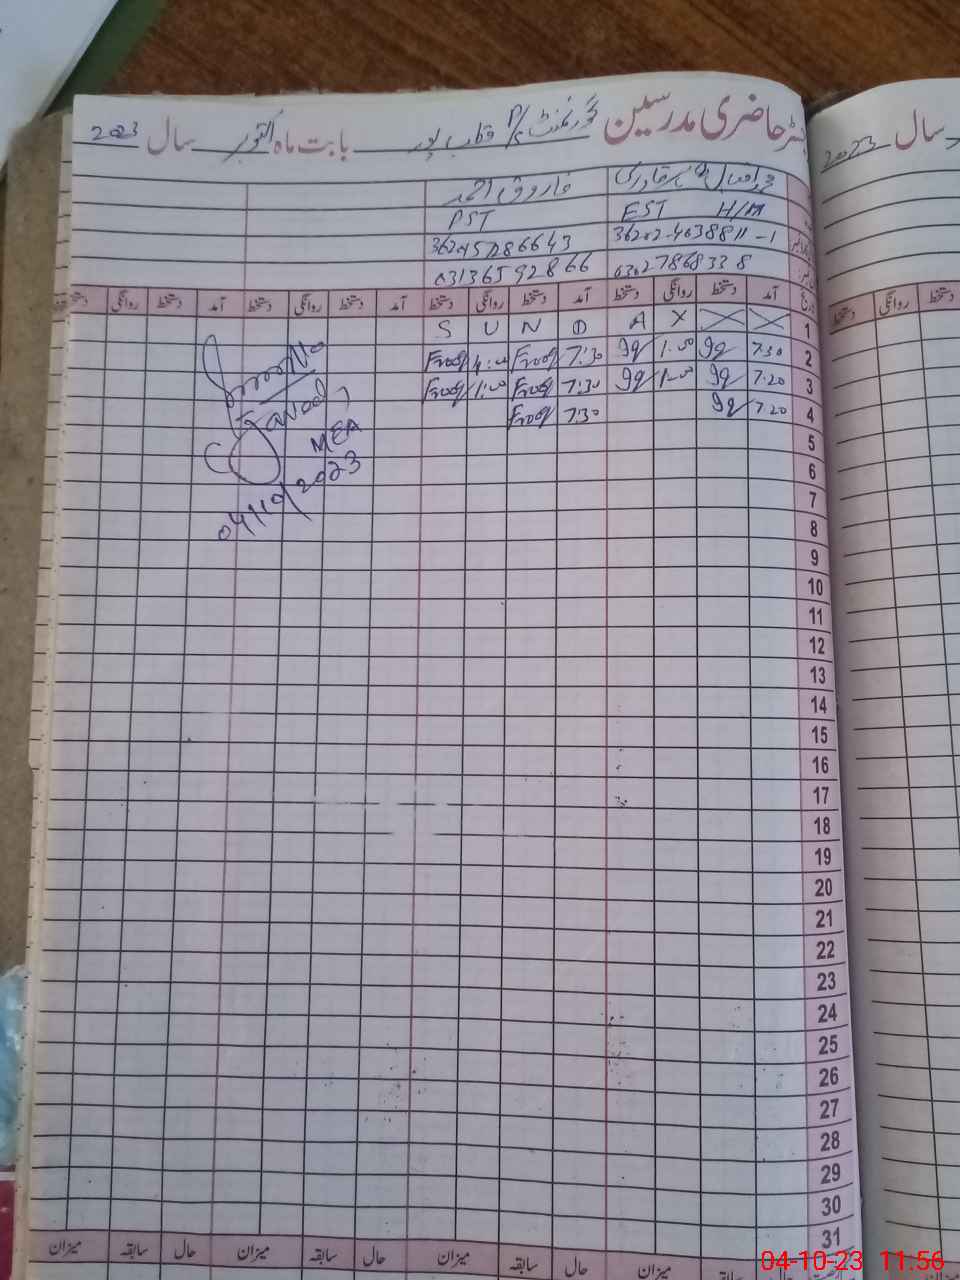 رجسٹر حاضری مدرسین گورنمنٹ P/S قطب پور بابت ماہ اکتوبر سال 2023
سال 2023
فاروق احمد
EST H/M PST
36202-4038811-1
03027868338 03136592866
آمد دستخط روانگی دستخط آمد دستخط روانگی دستخط آمد دستخط روانگی دستخط آمد دستخط روانگی دستخط
دستخط روانگی دستخط
1 X A D N U S
2 7:30 1:00 7:30 Frooq 4:00 Frooq
3 7:20 1:00 7:30 Frooq 1:00 Frooq
4 7:20 7:30 Frooq
Javed
MEA
04/10/2023
5
6
7
8
9
10
11
12
13
14
15
16
17
18
19
20
21
22
23
24
25
26
27
28
29
30
31
میزان سابقہ حال میزان سابقہ حال میزان سابقہ حال میزان سابقہ حال
04-10-23 11:56